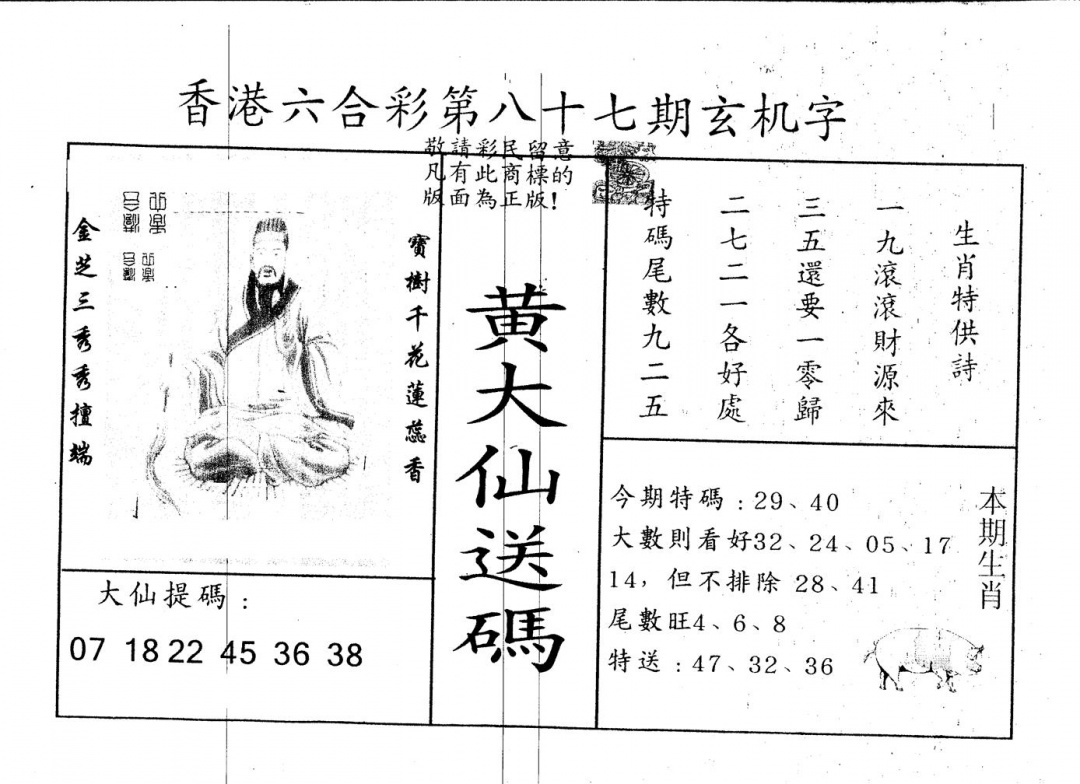 香港六合彩第八十七期玄机字
敬請彩民留意
凡有此商標的
版面為正版!
金芝三秀秀擅端
寶樹千花蓮蕊香
黄大仙送碼
生肖特供詩
一九滾滾財源來
三五還要一零歸
二七二一各好處
特碼尾數九二五
大仙提碼：
07 18 22 45 36 38
本期生肖
今期特碼：29、40
大數則看好32、24、05、17
14，但不排除 28、41
尾數旺4、6、8
特送：47、32、36